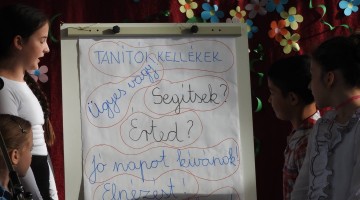 TANÍTÓK KELLÉKEK
Ügyes vagy
Segítsek?
Érted?
Jó napot kívánok!
Elnézést!